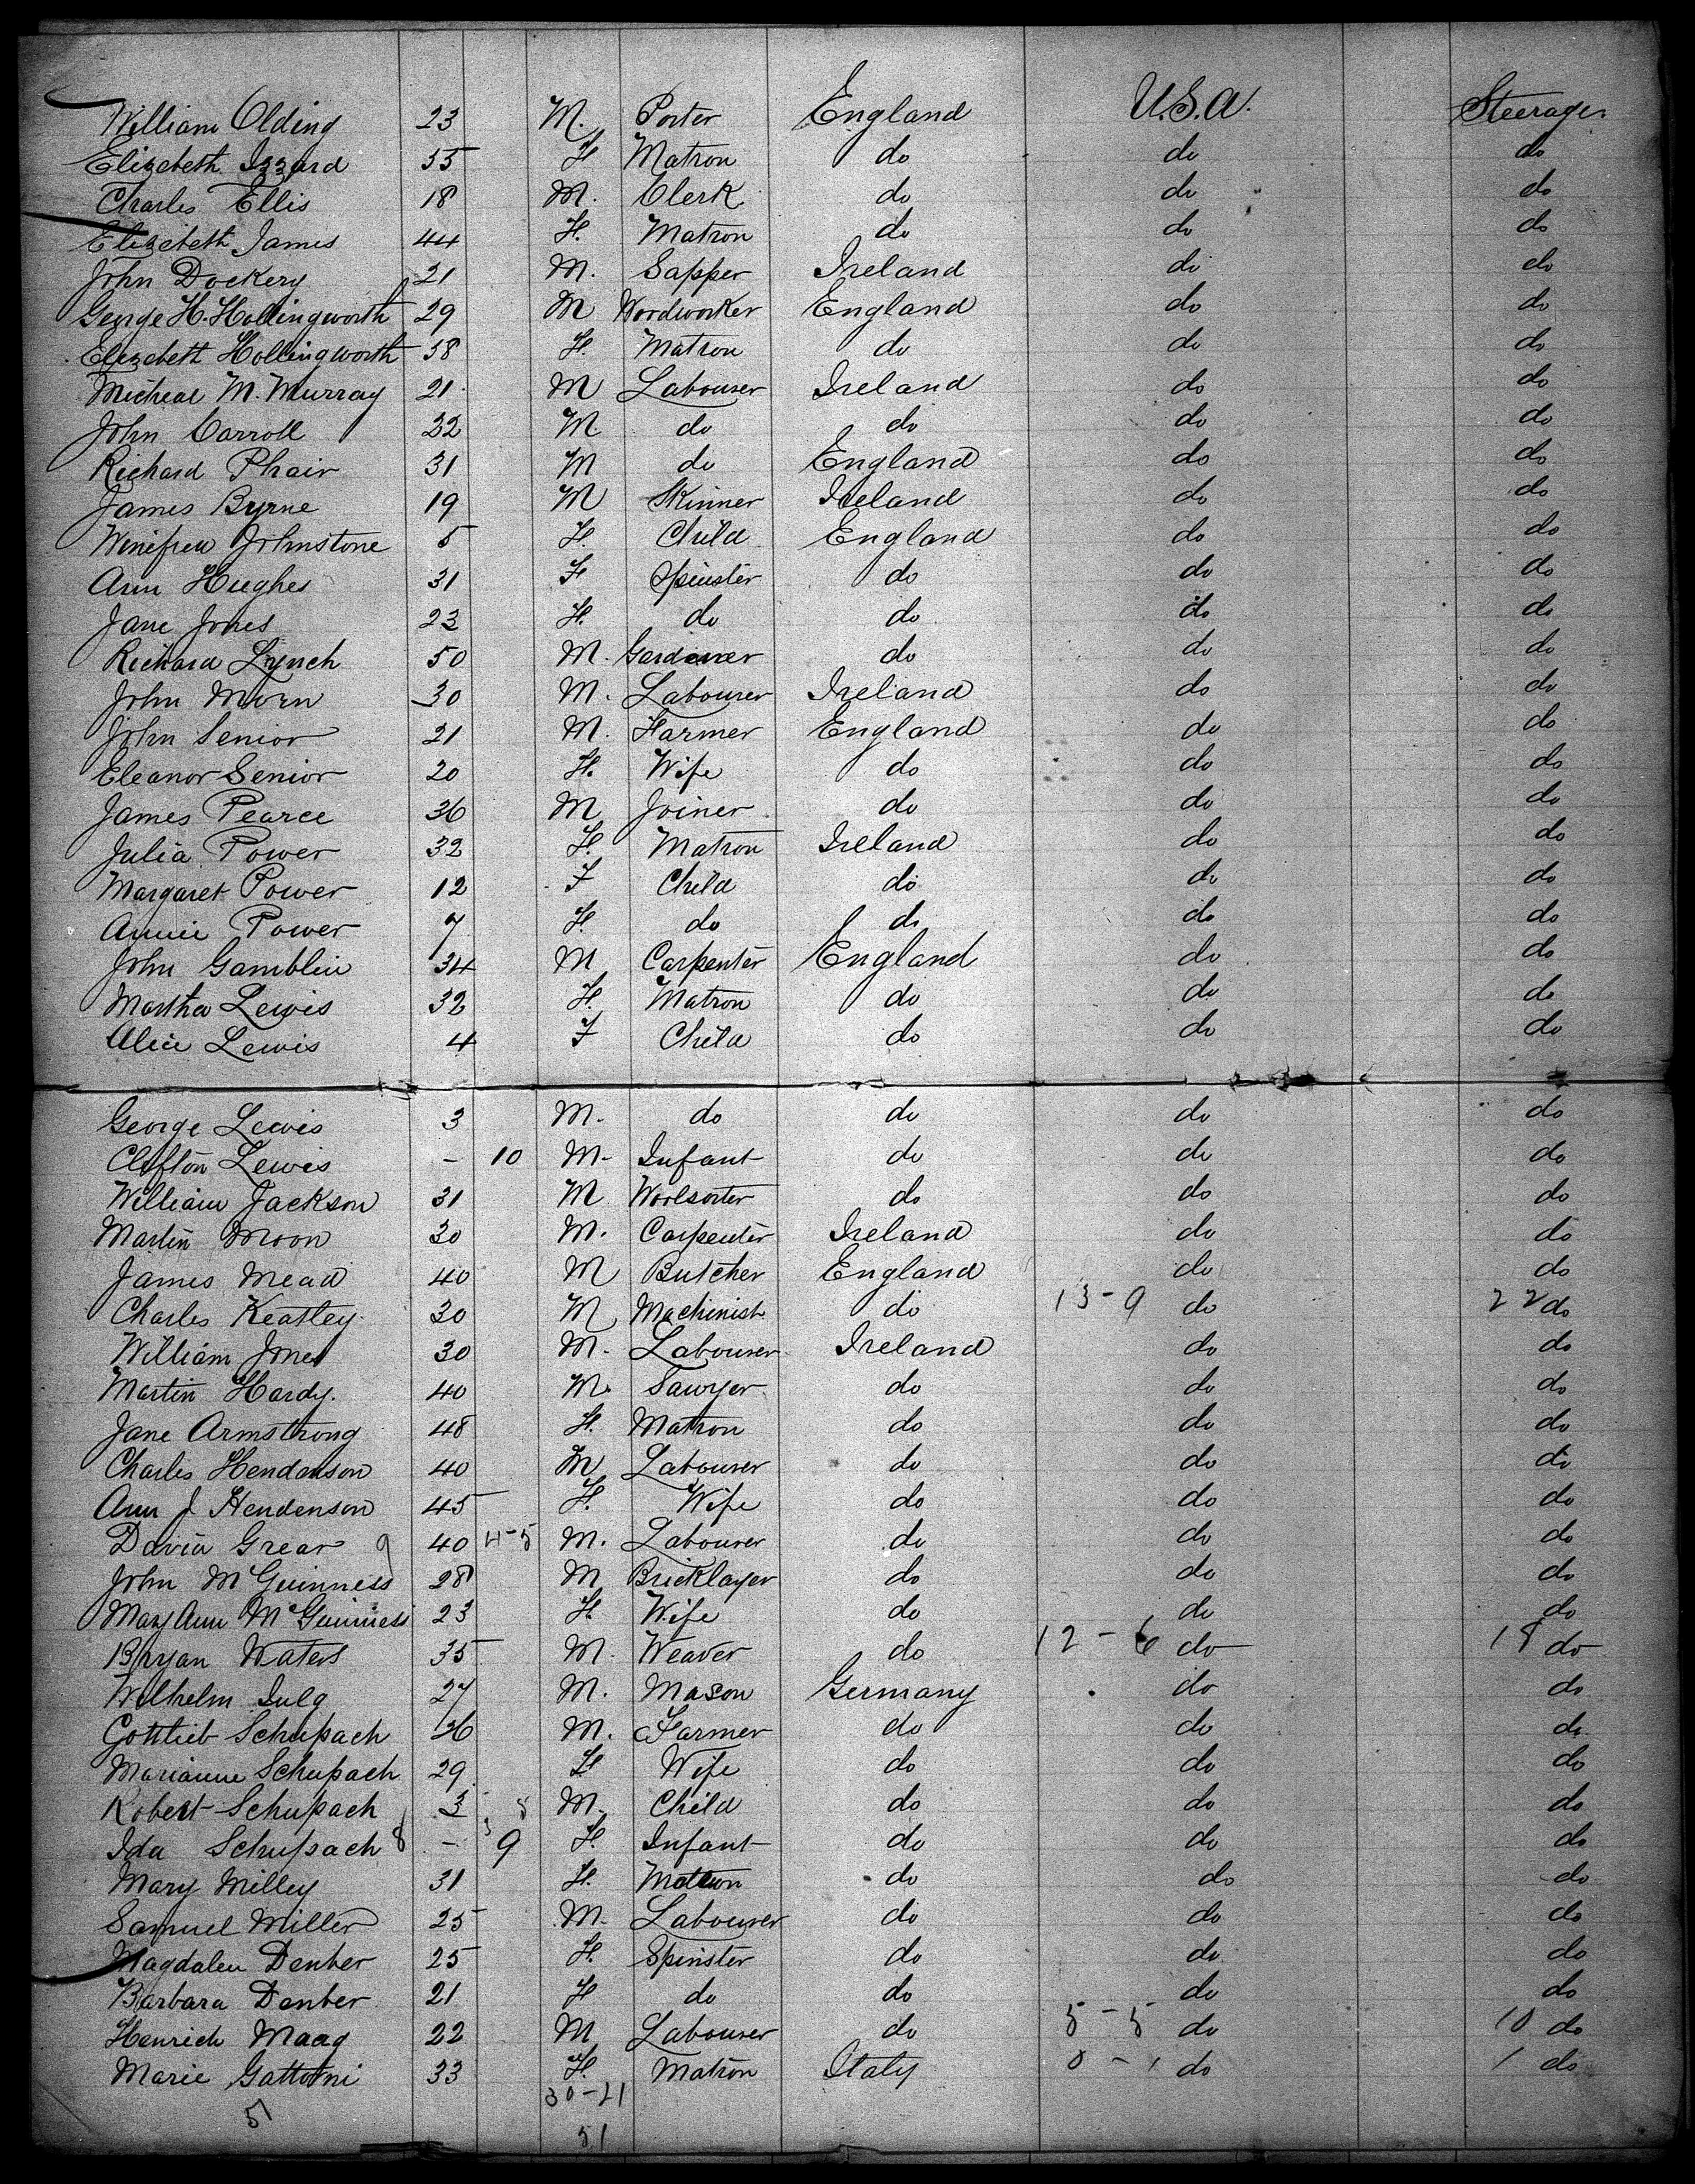 William Olding 23 M. Porter England U.S.A. Steerage
Elizebeth Izzard 55 F Matron do do do
Charles Ellis 18 M. Clerk do do do
Elizebeth James 44 F. Matron do do do
John Dockery 21 M. Sapper Ireland do do
George H. Hollingworth 29 M Woodworker England do do
Elizebeth Hollingworth 38 F. Matron do do do
Micheal M. Murray 21 M Labourer Ireland do do
John Carroll 32 M do do do do
Richard Phair 31 M do England do do
James Byrne 19 M Skinner Ireland do do
Winifred Johnstone 5 F. Child England do do
Ann Hughes 31 F Spinster do do do
Jane Jones 23 F. do do do do
Richard Lynch 50 M. Gardiner do do do
John Morn 30 M. Labourer Ireland do do
John Senior 21 M. Farmer England do do
Eleanor Senior 20 F. Wife do do do
James Pearce 36 M Joiner do do do
Julia Power 32 F. Matron Ireland do do
Margaret Power 12 F Child do do do
Annie Power 7 F. do do do do
John Gamblin 34 M Carpenter England do do
Martha Lewis 32 F. Matron do do do
Alice Lewis 4 F Child do do do
George Lewis 3 M. do do do do
Clifton Lewis - 10 M- Infant do do do
William Jackson 31 M Woolsorter do do do
Martin Moon 30 M. Carpenter Ireland do do
James Mead 40 M Butcher England do do
Charles Keatley 30 M Machinist do 13-9 do 22 do
William Jones 30 M. Labourer Ireland do do
Martin Hardy. 40 M. Sawyer do do do
Jane Armstrong 48 F. Matron do do do
Charles Henderson 40 M Labourer do do do
Ann J Henderson 45 F. Wife do do do
David Grear 9 40 4-5 M. Labourer do do do
John McGuinness 28 M Bricklayer do do do
Mary Ann McGuinness 23 F. Wife do do do
Bryan Waters 35 M. Weaver do 12-6 do 18 do
Wilhelm Julg 27 M. Mason Germany do do
Gottlieb Schupach 36 M. Farmer do do do
Marianne Schupach 29 F Wife do do do
Robert Schupach 3 M. Child do do do
Ida Schupach 8 - 9 F. Infant do do do
Mary Milley 31 F. Matron do do do
Samuel Miller 25 M. Labourer do do do
Magdalen Denber 25 F. Spinster do do do
Barbara Denber 21 F do do do do
Henrich Maag 22 M Labourer do 5-5 do 10 do
Marie Gattorni 33 F. Matron Italy 0-1 do 1 do
30-21
51
51